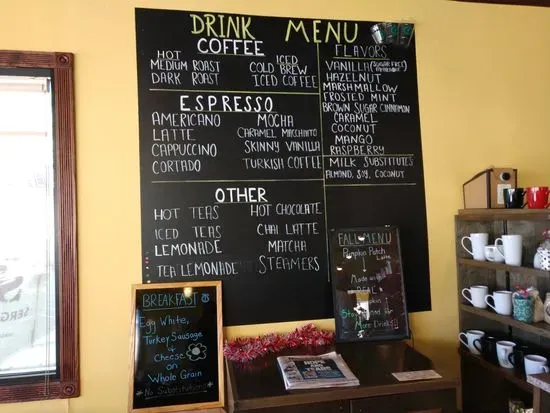 DRINK MENU
COFFEE
HOT
MEDIUM ROAST
DARK ROAST
ICED
COLD BREW
ICED COFFEE
ESPRESSO
AMERICANO
LATTE
CAPPUCCINO
CORTADO
MOCHA
CARAMEL MACCHIATO
SKINNY VANILLA
TURKISH COFFEE
OTHER
HOT TEAS
ICED TEAS
LEMONADE
TEA LEMONADE
HOT CHOCOLATE
CHAI LATTE
MATCHA
STEAMERS
FLAVORS
VANILLA (SUGAR FREE
HAZELNUT
MARSHMALLOW
FROSTED MINT
BROWN SUGAR CINNAMON
CARAMEL
COCONUT
MANGO
RASPBERRY
MILK SUBSTITUTES
ALMOND, SOY, COCONUT
FALL MENU
Pumpkin Patch
Latte
Made with
REAL
Pumpkin
More Drinks!
BREAKFAST
Egg White,
Turkey Sausage
&
Cheese
on
Whole Grain
No Substitutions
SERG